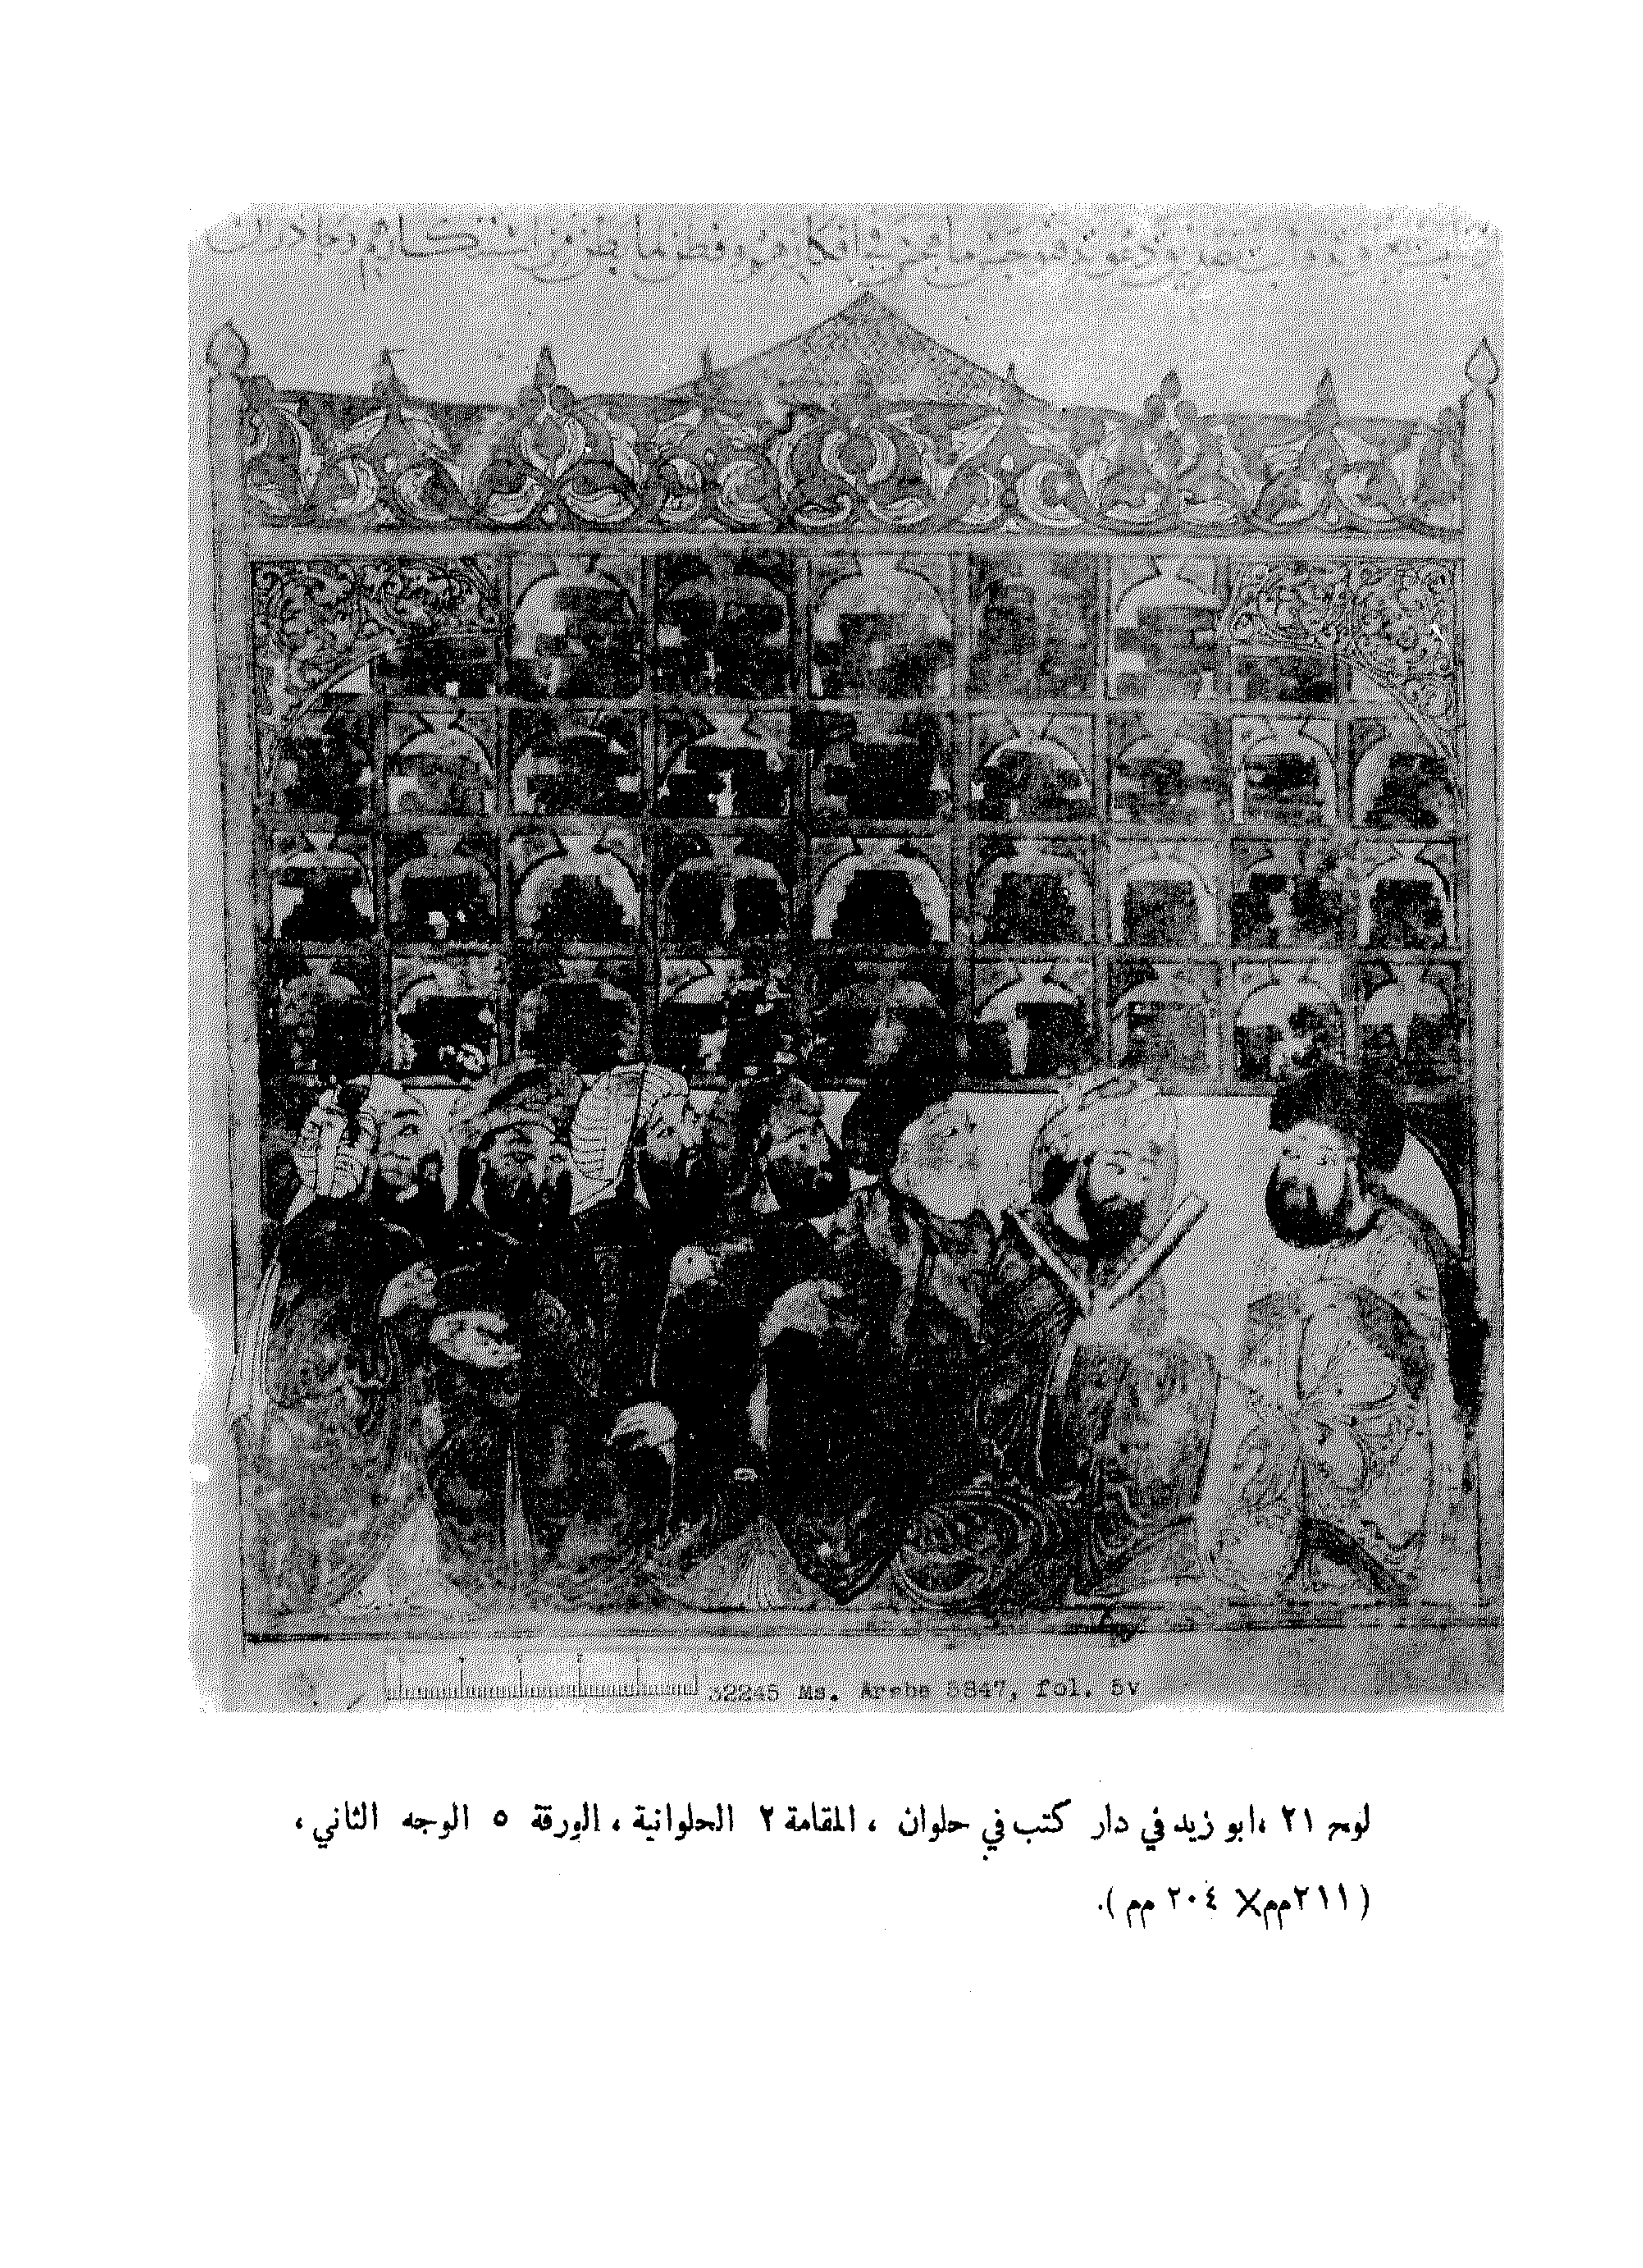 32245 Ms. Arabe 5847, fol. 5v
لوح ٢١ ،ابو زيد في دار كتب في حلوان ، المقامة ٢ الحلوانية ، الورقة ٥ الوجه الثاني ،
( ٢١١مم× ٢٠٤ مم ).